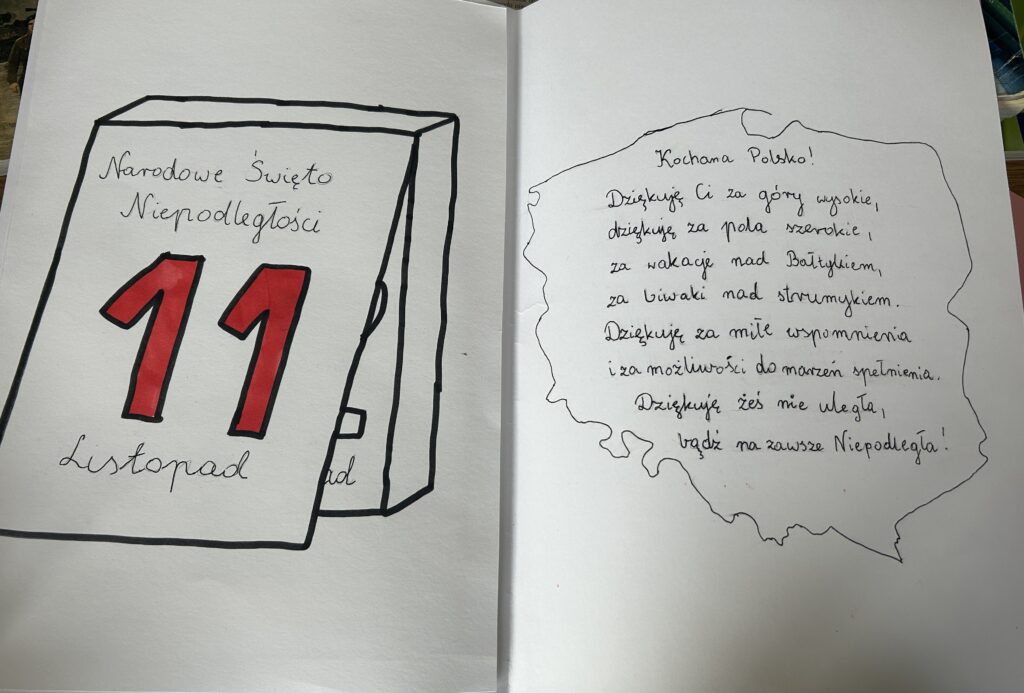 Narodowe Święto
Niepodległości
11
Listopad
ad
Kochana Polsko!
Dziękuję Ci za góry wysokie,
dziękuję za pola szerokie,
za wakacje nad Bałtykiem,
za biwaki nad strumykiem.
Dziękuję za miłe wspomnienia
i za możliwości do marzeń spełnienia.
Dziękuję żeś nie uległa,
bądź na zawsze Niepodległa!